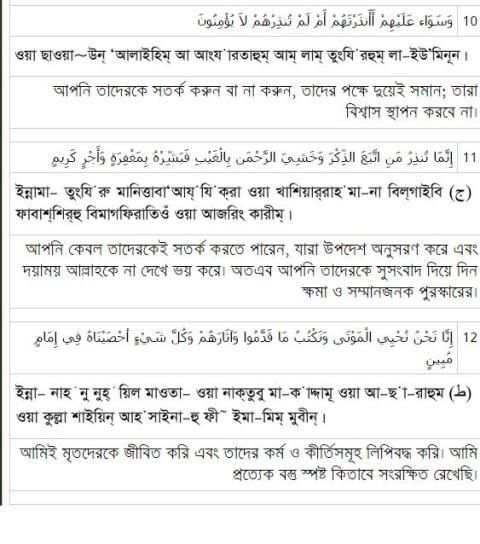 10 وَسَوَاء عَلَيْهِمْ أَأَنذَرْتَهُمْ أَمْ لَمْ تُنذِرْهُمْ لاَ يُؤْمِنُونَ
ওয়া ছাওয়া~উন্ ‘আলাইহিম্ আ আংযারতাহুম্ আম্ লাম্ তুংযিরহুম্ লা–ইউ’মিনূন।
আপনি তাদেরকে সতর্ক করুন বা না করুন, তাদের পক্ষে দুয়েই সমান; তারা
বিশ্বাস স্থাপন করবে না।
11 إِنَّمَا تُنذِرُ مَنِ اتَّبَعَ الذِّكْرَ وَخَشِيَ الرَّحْمَن بِالْغَيْبِ فَبَشِّرْهُ بِمَغْفِرَةٍ وَأَجْرٍ كَرِيمٍ
ইন্নামা– তুংযি˙রু মানিত্তাবা‘আয্˙যি˙ক্রা ওয়া খাশিয়াররাহ˙মা–না বিল্গাইবি (ج)
ফাবাশ্শিরহু বিমাগফিরাতিওঁ ওয়া আজরিং কারীম্।
আপনি কেবল তাদেরকেই সতর্ক করতে পারেন, যারা উপদেশ অনুসরণ করে এবং
দয়াময় আল্লাহকে না দেখে ভয় করে। অতএব আপনি তাদেরকে সুসংবাদ দিয়ে দিন
ক্ষমা ও সম্মানজনক পুরস্কারের।
12 إِنَّا نَحْنُ نُحْيِي الْمَوْتَى وَنَكْتُبُ مَا قَدَّمُوا وَآثَارَهُمْ وَكُلَّ شَيْءٍ أحْصَيْنَاهُ فِي إِمَامٍ
مُبِينٍ
ইন্না– নাহ˙নু নুহ্˙য়িল মাওতা– ওয়া নাক্তুবু মা–ক˙াদ্দামূ ওয়া আ–ছ˙া–রাহুম (ط)
ওয়া কুল্লা শাইয়িন্ আহ˙সাইনা–হু ফী~ ইমা–মিম্ মুবীন্।
আমিই মৃতদেরকে জীবিত করি এবং তাদের কর্ম ও কীর্তিসমূহ লিপিবদ্ধ করি। আমি
প্রত্যেক বস্তু স্পষ্ট কিতাবে সংরক্ষিত রেখেছি।